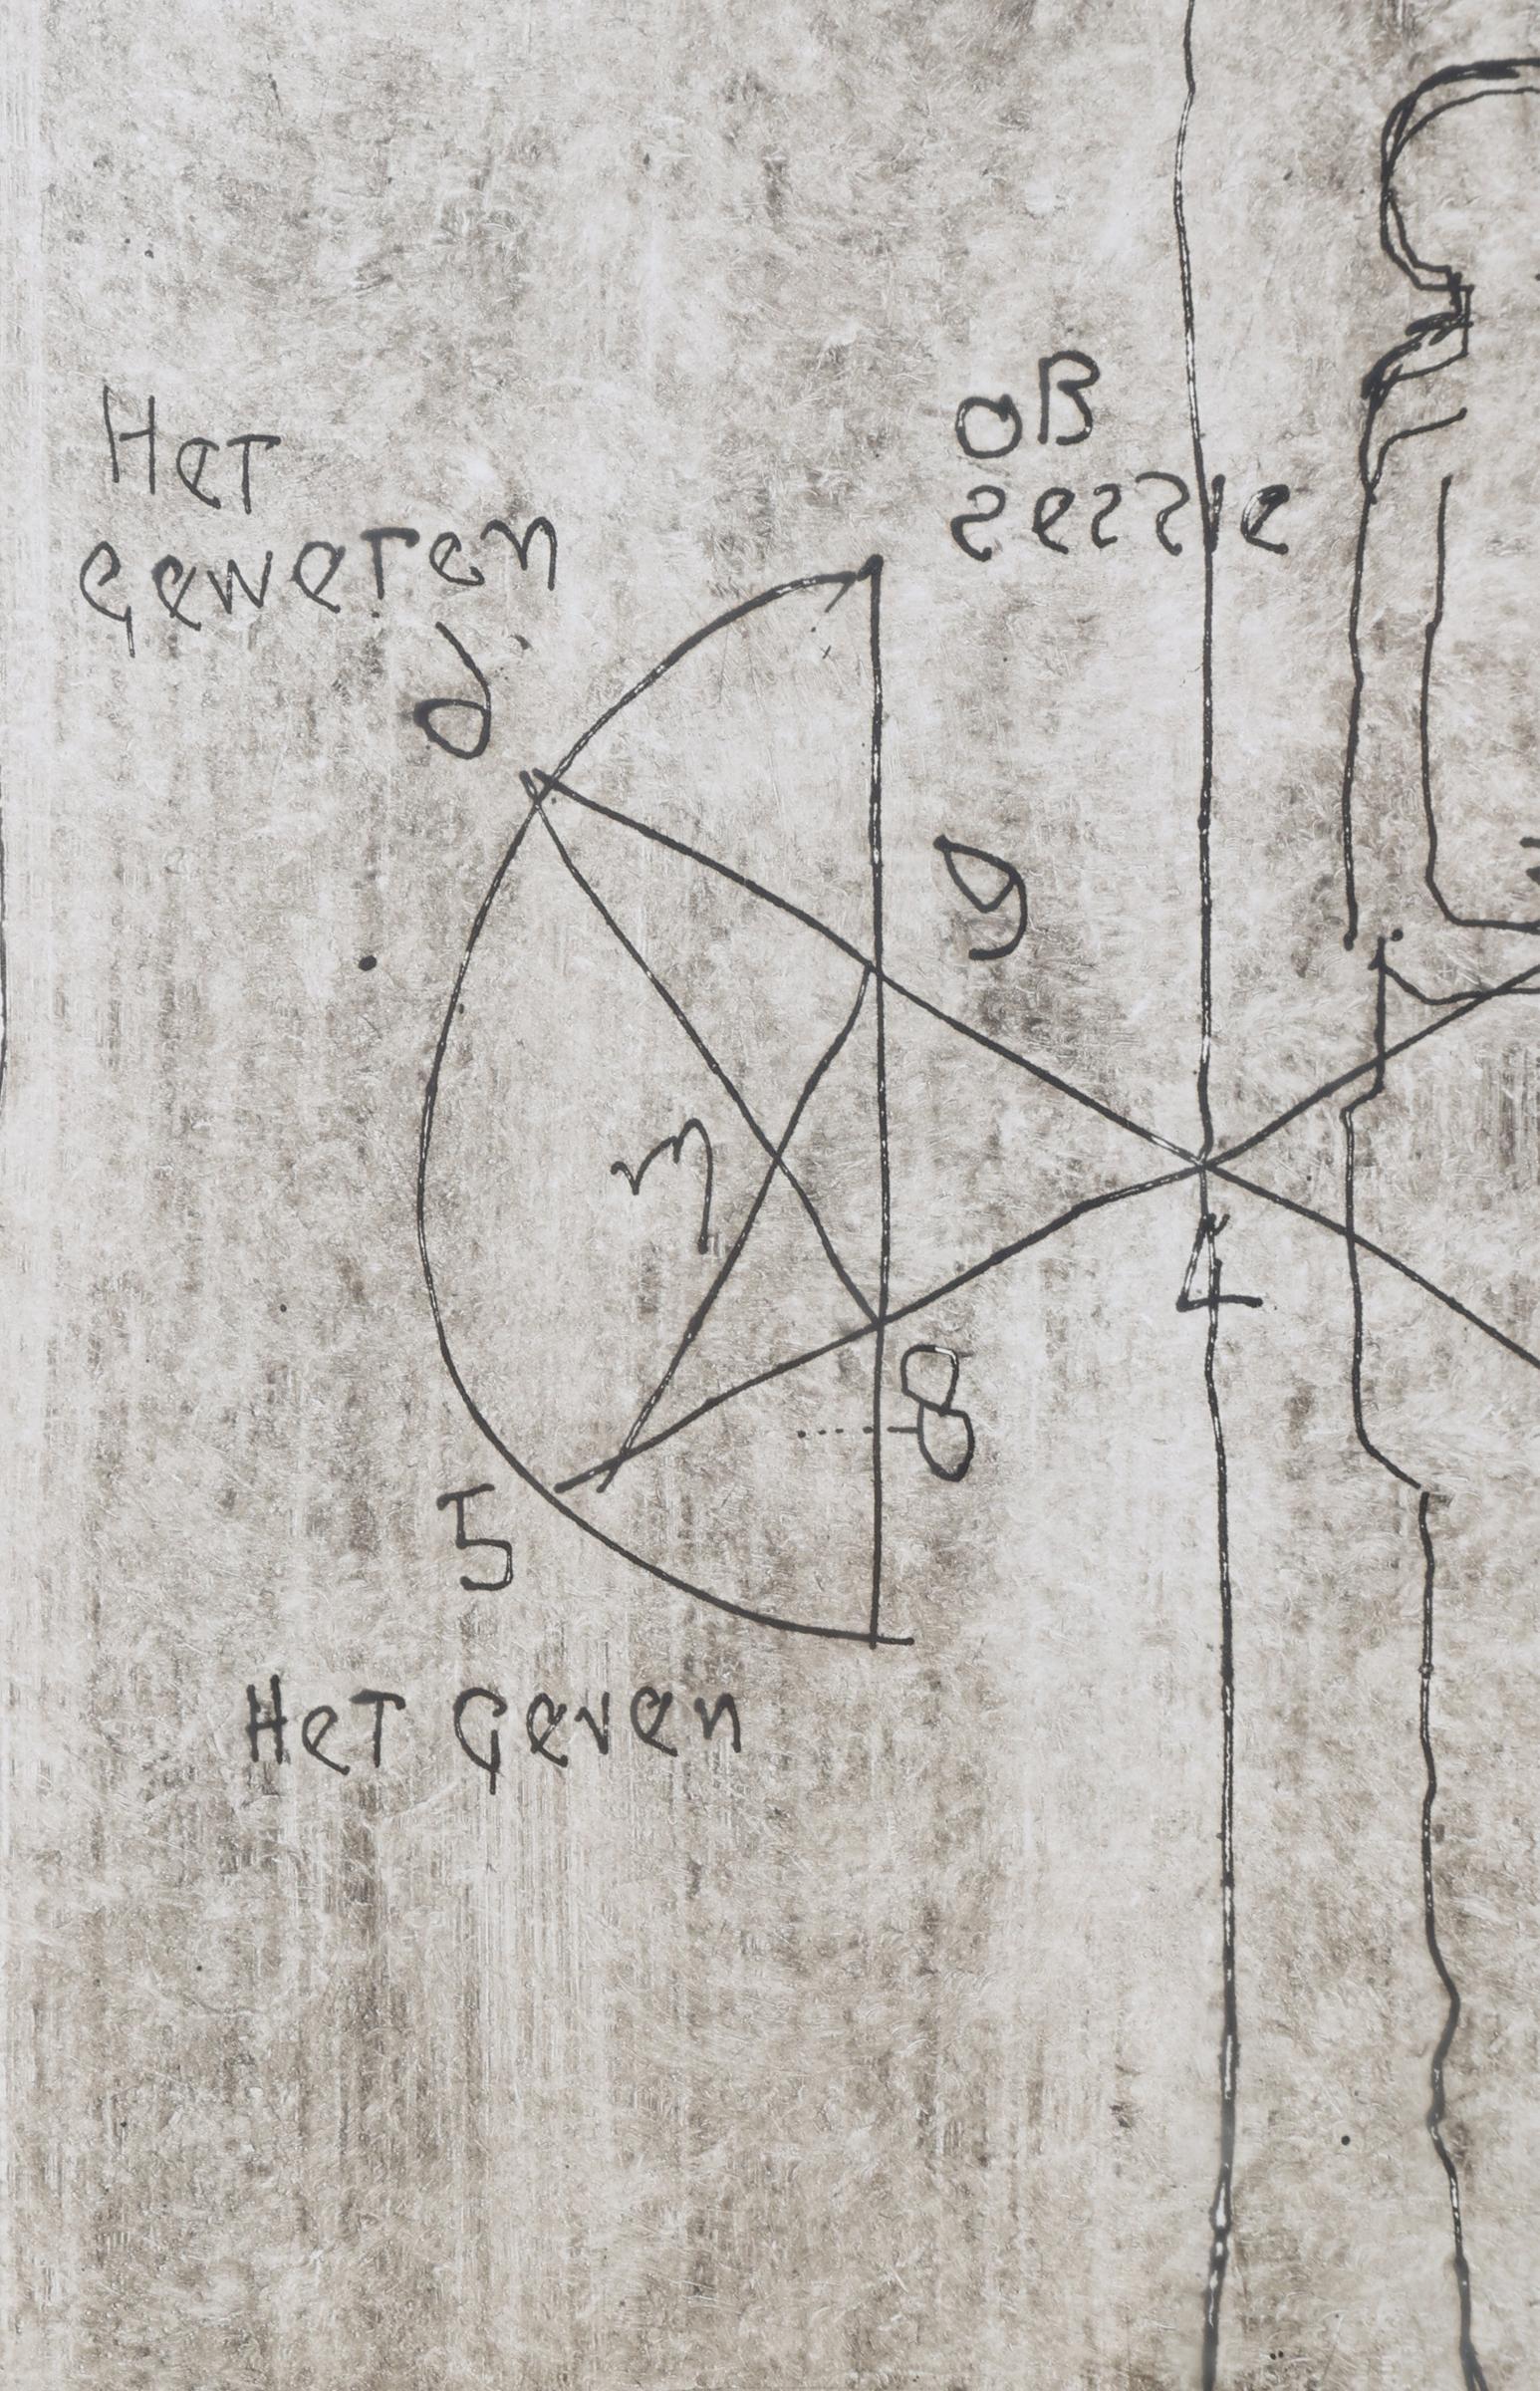 Het
geweten
oB
sessie
6
9
7
8
4
5
Het geven